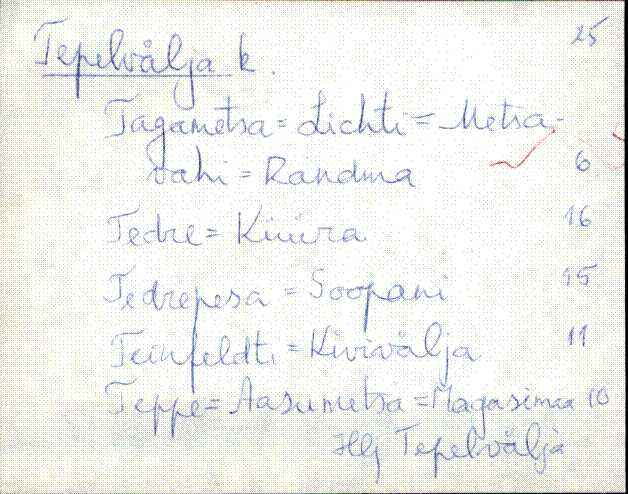 Tepelvälja k. 25
Tagametsa = Lichti = Metsa-
vahi = Randma 6
Tedre = Küüra 16
Tedrepesa = Soopani 15
Teinfeldti = Kivivälja 11
Teppe = Aasumetsa = Magasimaa 10
Hlj Tepelvälja